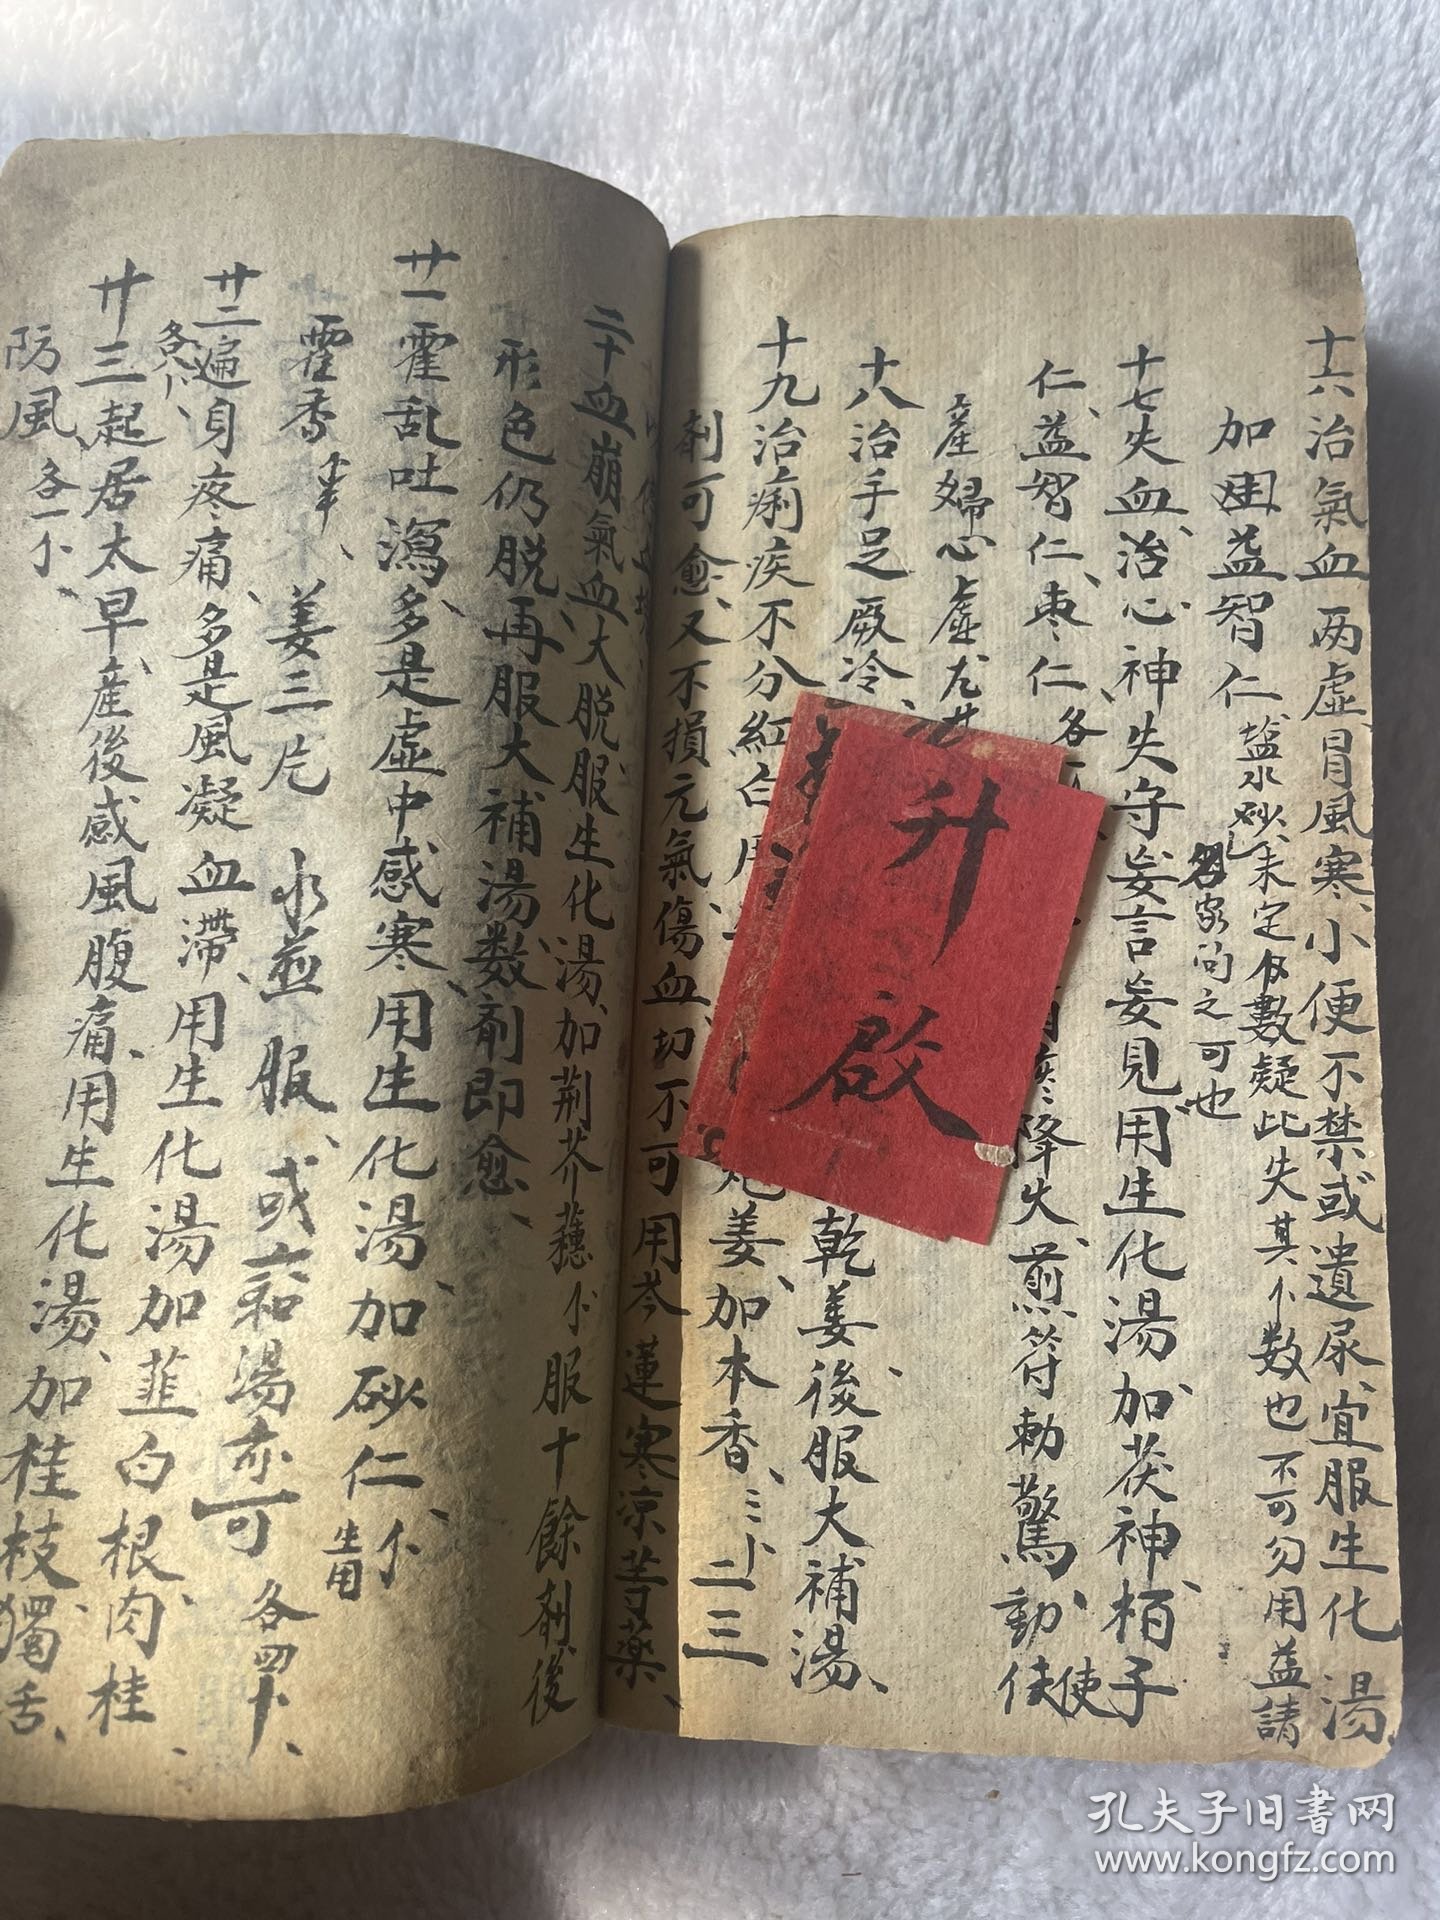 十六治氣血两虚冒風寒、小便不禁或遺尿、宜服生化湯
加益智仁
塩水砂、未定分數疑此失其分數也不可勿用益請
名家问之可也
十七失血、治心神失守妄言妄見用生化湯加茯神、柏子
仁、益智仁、枣仁、各
降火、煎符勅驚、動使
產婦心虛
十八治手足厥冷
乾姜後服大補湯、
十九治痢疾不分紅白
姜、加本香、三分二三
剤可愈、又不損元氣傷血、切不可用芩蓮寒凉等藥、
二十血崩氣血大脱服生化湯、加荆芥穗分服十餘剤後
形色仍脱、再服大補湯数剤即愈、
廿一霍乱吐瀉、多是虚中感寒、用生化湯、加砂仁、分
生用
霍香、姜三片水煎服、或湯亦可各四分、
廿二遍身疼痛、多是風凝血滞、用生化湯加韮白根肉桂
各分、
廿三起居太早、產後感風腹痛、用生化湯、加桂枝獨舌、
防風、各一分、
升啟
孔夫子旧書网
www.kongfz.com